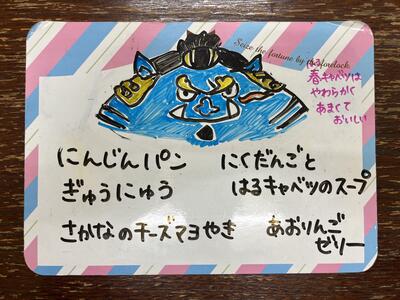 Seize the fortune by the forelock.
春キャベツは
はる
やわらかく
あまくて
おいしい
にんじんパン
にくだんごと
ぎゅうにゅう
はるキャベツのスープ
さかなのチーズマヨやき
あおりんご
ゼリー